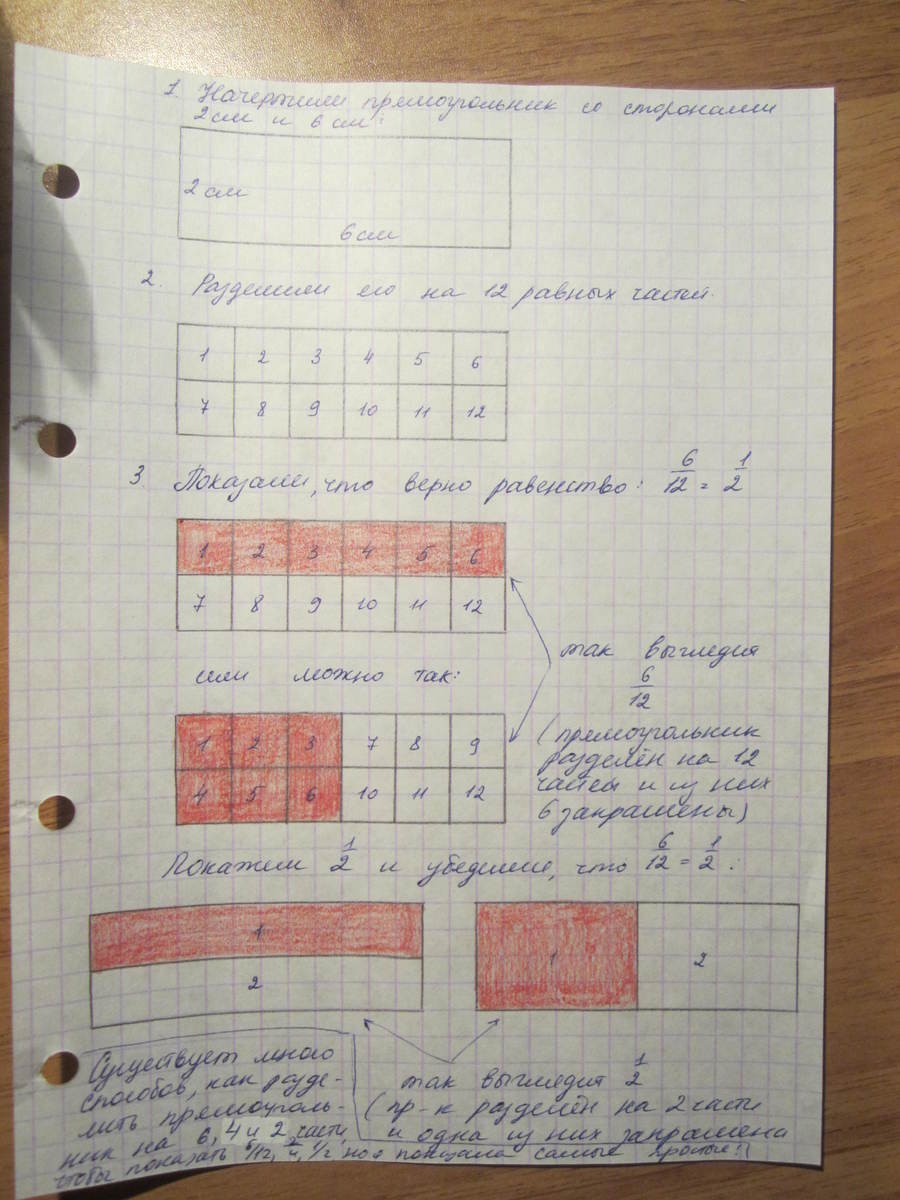 1. Начертили прямоугольник со сторонами
2 см и 6 см:
2 см
6 см
2. Разделили его на 12 равных частей.
1 2 3 4 5 6
7 8 9 10 11 12
3. Показали, что верно равенство: 6/12 = 1/2
1 2 3 4 5 6
7 8 9 10 11 12
или можно так:
1 2 3 7 8 9
4 5 6 10 11 12
так выглядит
6/12
(прямоугольник
разделён на 12
частей и из них
6 закрашены)
Покажем 1/2 и убедимся, что 6/12 = 1/2:
1
2
1 2
так выглядит 1/2
(пр-к разделён на 2 части
и одна из них закрашена
Существует много
способов, как разде-
лить прямоуголь-
ник на 6, 4 и 2 части,
чтобы показать 6/12, 1/2 но я показала самые простые!)